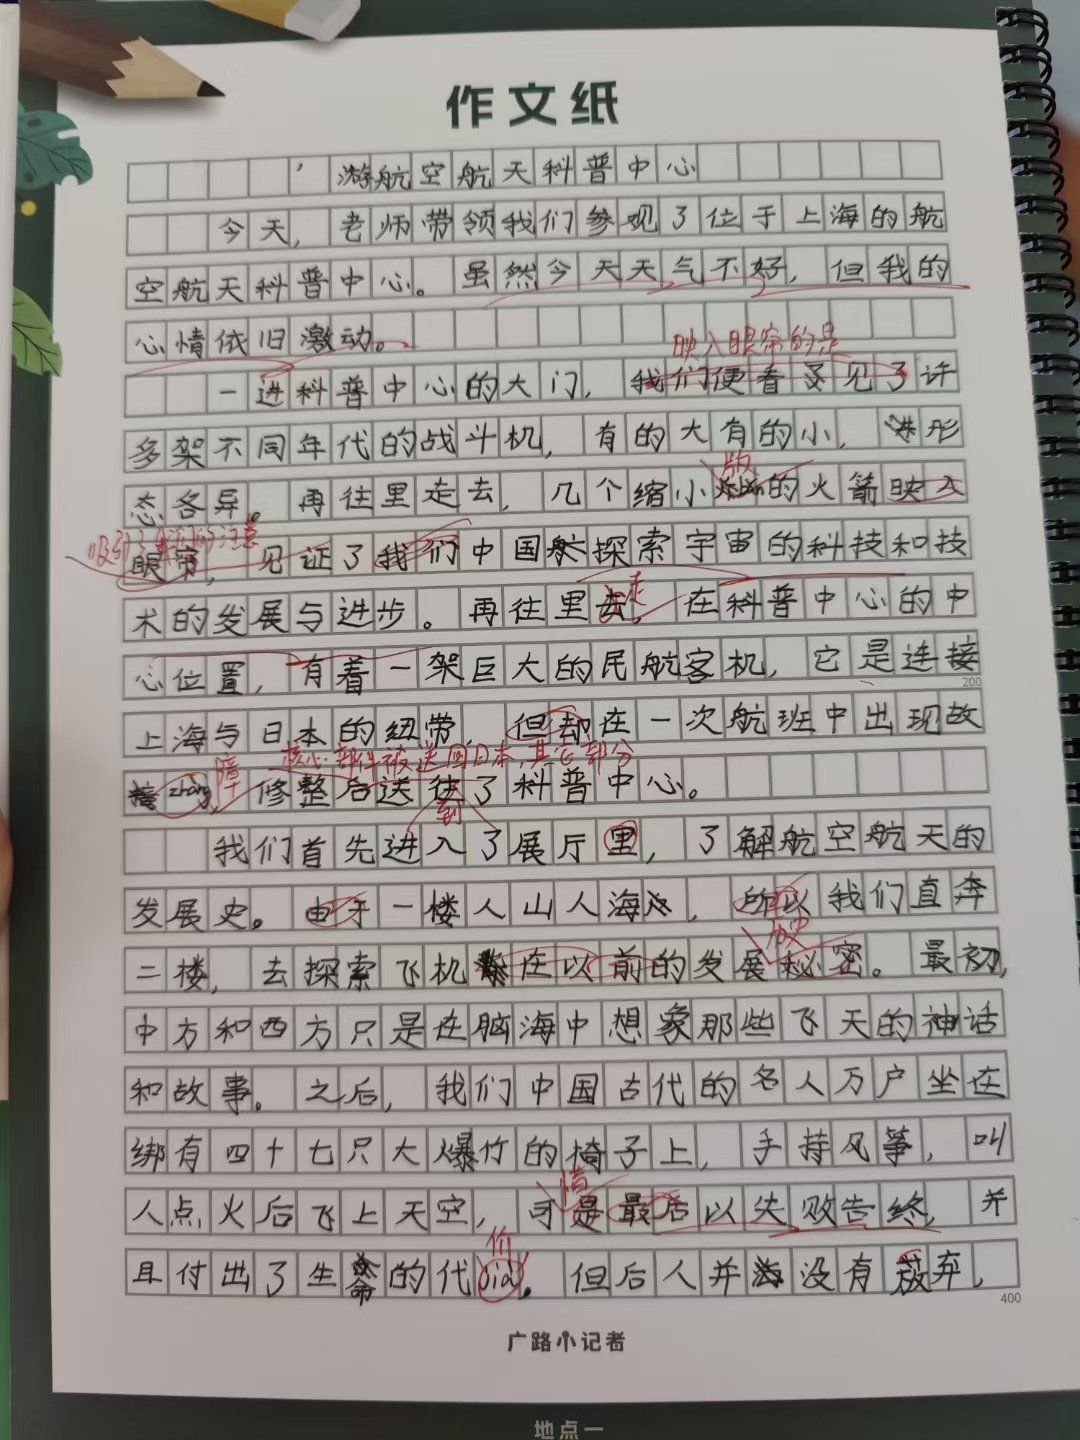 作文纸
游航空航天科普中心
今天，老师带领我们参观了位于上海的航
空航天科普中心。虽然今天天气不好，但我的
心情依旧激动。
映入眼帘的是
一进科普中心的大门，我们便看见了许
多架不同年代的战斗机，有的大有的小，形
版
态各异。再往里走去，几个缩小的火箭映入
吸引了我们的注意
眼帘，见证了我们中国航探索宇宙的科技和技
走
术的发展与进步。再往里去，在科普中心的中
心位置，有着一架巨大的民航客机，它是连接
200
上海与日本的纽带，但却在一次航班中出现故
障 核心部件被送回日本，其它部分
zhàng，修整后送往了科普中心。
到
我们首先进入了展厅里，了解航空航天的
发展史。由于一楼人山人海，所以我们直奔
历史
二楼，去探索飞机在以前的发展秘密。最初，
中方和西方只是在脑海中想象那些飞天的神话
和故事。之后，我们中国古代的名人万户坐在
绑有四十七只大爆竹的椅子上，手持风筝，叫
惜
人点火后飞上天空，可是最后以失败告终，并
价
且付出了生命的代jià。但后人并没有放弃，
400
广路小记者
地点一